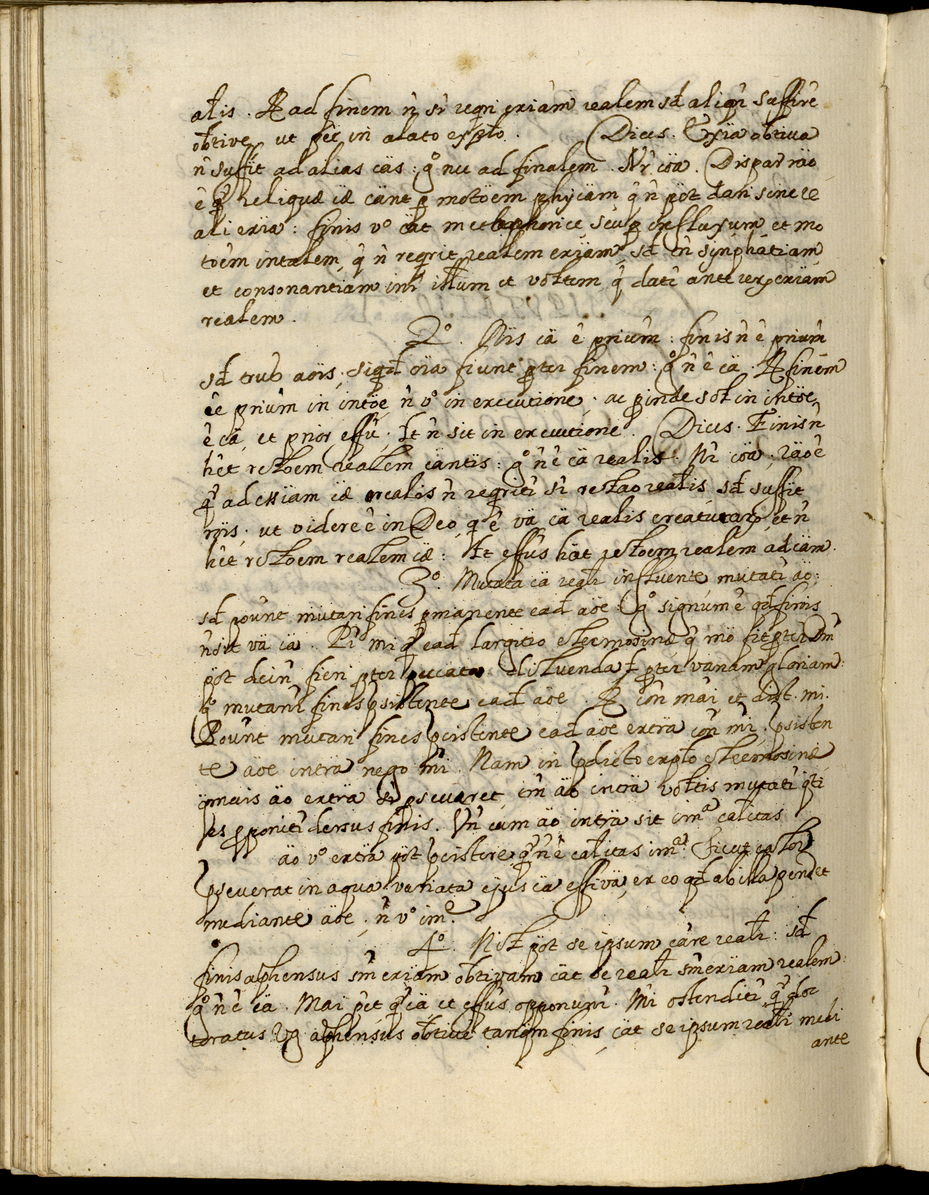 alis. R ad finem n̄ sr̄ reqri exīam realem sd̄ aliqn̄ suffire
obtive, ut pēt in alato explo. Dices. Exīa obtiva
n̄ suffit ad alias cäs: g° nec ad finalem. Nr̄ cöa. Dispar räo
ē q̄ reliquæ cæ cänt p motoem phycam q̄ n̄ pöt dari sine re
ali exia: finis v° cät metaphorice, seu p influxum, et mo
toem intalem, q̄ n̄ reqrit realem exiam, sd̄ tn̄ symphatiam
et consonantiam inr̄ illum et voltem, q̄ datr̄ ante ver exiam
realem.
2°. Ois cä ē prium: finis n̄ ē prium
sd̄ ult aöis, siqd̄ oïa fiunt pter finem: g° n̄ ē cä. R finem
ēe prium in intöe, n̄ v° in executione; ac pinde sol in intöe
ē cä, et prior effū, lt n̄ sit in executione. Dices. Finis n̄
hēt reltoem realem cäntis: g° n̄ ē cä realis. Nr̄ cöa; räo ē
q̄ ad essiam cæ realis n̄ reqritr̄ sr̄ reltao realis, sd̄ suffit
rnis, ut videre ē in Deo, q̄ ē va cä realis creaturarum, et n̄
hēt reltoem realem cæ: lt effus hät reltoem realem ad cäm.
3°. Mutata cä reali influente mutatr̄ äo:
sd̄ pount mutari fines pmanente ead̄ aöe: g° signum ē qd̄ finis
n̄ sit va cä. Pr̄ mi q̄ ead̄ largitio elemosinæ q̄ mo fit pter Dm̄
pöt dein̄ fieri pter peccata diluenda, l̄ pter vanam gloriam:
g° mutantr̄ fines psistente ead̄ aöe. R con̄ mai et dist. mi.
Pount mutari fines psistente ead̄ aöe extra con̄ mi. psisten
te aöe intra nego mi. Nam in pdicto explo elemosinæ
qmvis äo extra psevaret, tm̄ äö intra voltis mutatr̄ qti
es pponitr̄ dersus finis. Un̄ cum äo intra sit imª calitas
äo v° extra pöt psistere q̄ n̄ ē calitas imª. Sicut calor
pseverat in aqua variata ejus cä effiva, ex eo qd̄ ab illa pendet
mediante äöe, n̄ v° imᵉ.
4°. Nil pöt se ipsum cäre realr̄: sd̄
finis aphensus sm̄ exiam obtivam cät se realr̄ sm̄ exiam realem:
g° n̄ ē cä. Mai pēt q̄ cä et effus opponunr̄. Mi ostenditr̄ q̄ doc
toratus vg aphensus obtive tanqm finis, cät se ipsum realr̄ medi
ante